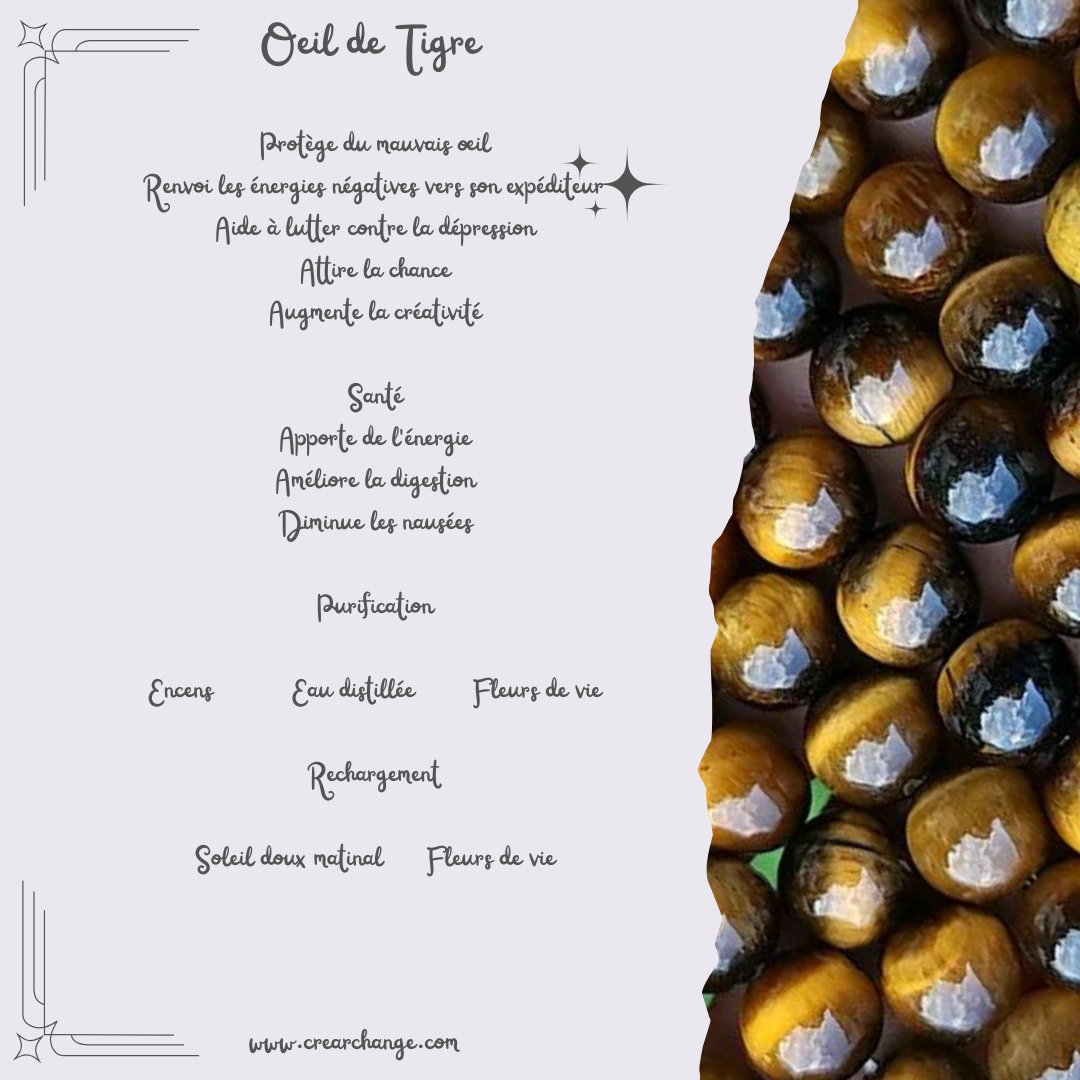 Oeil de Tigre
Protège du mauvais oeil
Renvoi les énergies négatives vers son expéditeur
Aide à lutter contre la dépression
Attire la chance
Augmente la créativité
Santé
Apporte de l'énergie
Améliore la digestion
Diminue les nausées
Purification
Encens Eau distillée Fleurs de vie
Rechargement
Soleil doux matinal Fleurs de vie
www.crearchange.com